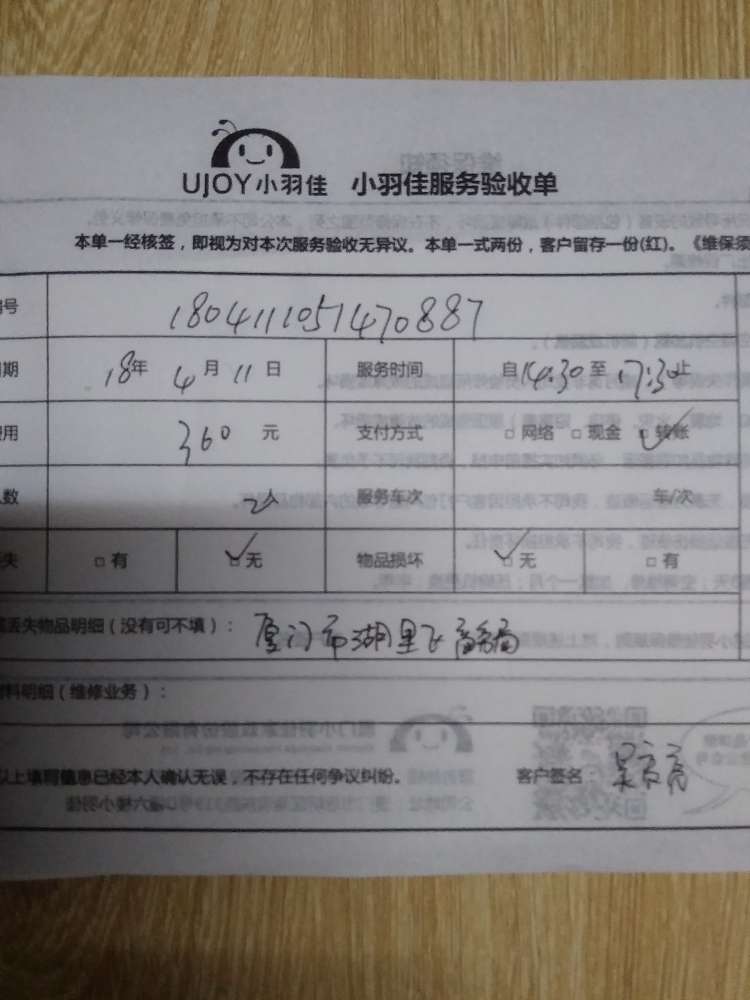 UJOY小羽佳 小羽佳服务验收单
本单一经核签，即视为对本次服务验收无异议。本单一式两份，客户留存一份(红)。《维保须
号 180411105147088７
期 18年 4月 11日 服务时间 自14:30至17:30止
用 360 元 支付方式 □网络 □现金 ☑转账
数 2人 服务车次 车/次
失 □有 ☑无 物品损坏 ☑无 □有
丢失物品明细（没有可不填）： 厦门市湖里 商务局
料明细（维修业务）：
以上填写信息已经本人确认无误，不存在任何争议纠纷。 客户签名：